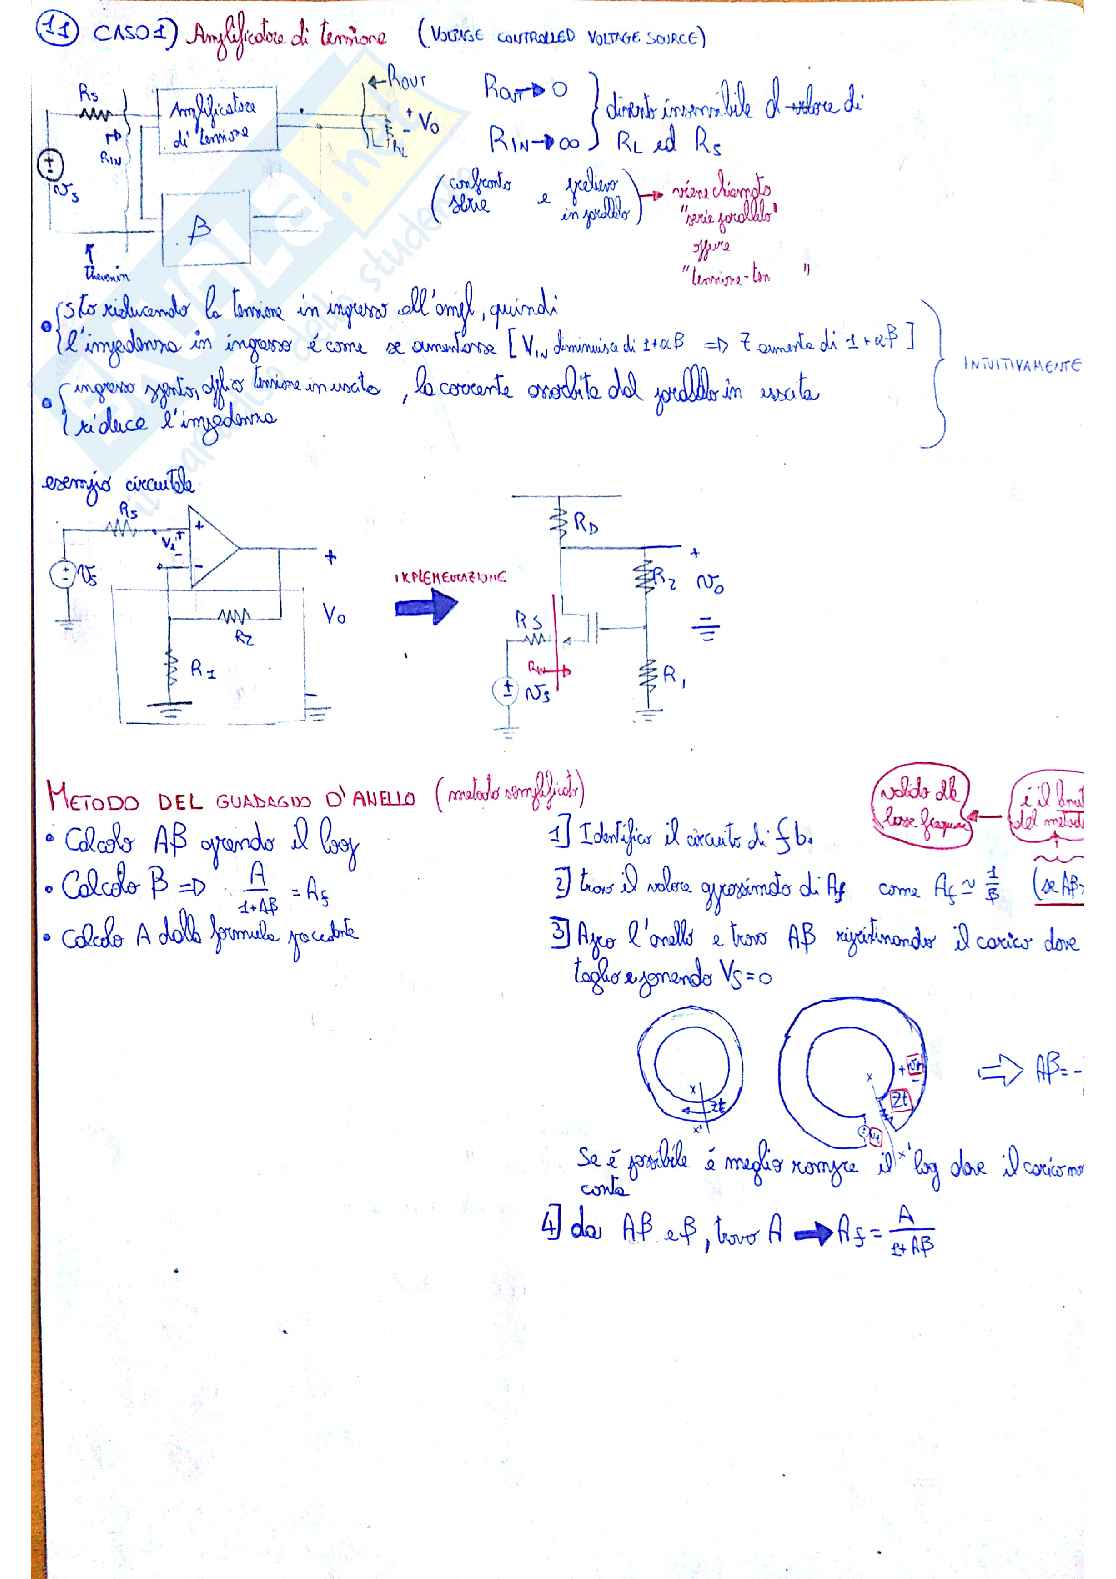 11 CASO 1) Amplificatore di tensione (VOLTAGE CONTROLLED VOLTAGE SOURCE)
RS
RIN
Amplificatore di tensione
ROUT
+ VO -
RL
VS
β
thevenin
ROUT → 0
RIN → ∞
divento insensibile al valore di
RL ed RS
(confronto serie e prelievo in parallelo) → viene chiamato
"serie parallelo"
oppure
"tensione-ten "
• Sto riducendo la tensione in ingresso all'ampl, quindi
l'impedenza in ingresso è come se aumentasse [VIN diminuisce di 1+αβ => Z aumenta di 1+αβ]
• ingresso spento, applico tensione in uscita, la corrente assorbita dal parallelo in uscita
riduce l'impedenza
INTUITIVAMENTE
esempio circuitale
RS
V1 + -
+
-
VS
R2
R1
+
VO
-
IMPLEMENTAZIONE
RD
+
R2
VO
RS
RIN
VS
R1
METODO DEL GUADAGNO D'ANELLO (metodo semplificato)
• Calcolo Aβ aprendo il loop
• Calcolo β => A/(1+Aβ) = Af
• Calcolo A dalla formula precedente
valido alle basse frequenze
è il limit
del metodo
1] Identifico il circuito di fb.
2] trovo il valore approssimato di Af come Af ≃ 1/β (se Aβ
3] Apro l'anello e trovo Aβ ripristinando il carico dove
taglio e ponendo VS=0
x
Zt
x'
x
+ Vr -
Zt
Vt
x'
=> Aβ = -
Se è possibile è meglio rompere il loop dove il carico no
conta
4] da Aβ e β, trovo A → Af = A/(1+Aβ)